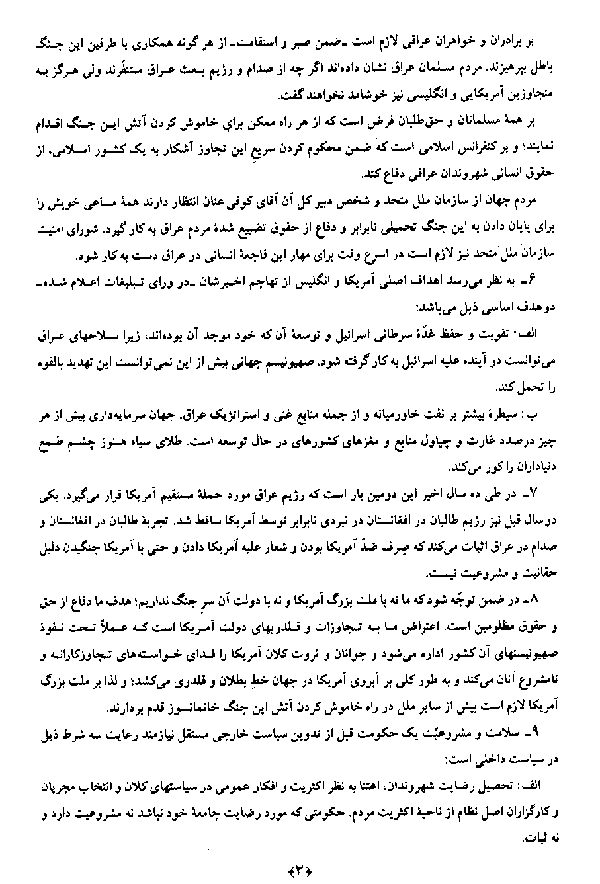 بر برادران و خواهران عراقی لازم است -ضمن صبر و استقامت- از هر گونه همکاری با طرفین این جنگ
باطل بپرهیزند. مردم مسلمان عراق نشان داده‌اند اگر چه از صدام و رژیم بعث عراق متنفّرند ولی هرگز به
متجاوزین آمریکایی و انگلیسی نیز خوشامد نخواهند گفت.
بر همهٔ مسلمانان و حق‌طلبان فرض است که از هر راه ممکن برای خاموش کردن آتش این جنگ اقدام
نمایند؛ و بر کنفرانس اسلامی است که ضمن محکوم کردن سریع این تجاوز آشکار به یک کشور اسلامی، از
حقوق انسانی شهروندان عراقی دفاع کند.
مردم جهان از سازمان ملل متحد و شخص دبیر کل آن آقای کوفی عنان انتظار دارند همهٔ مساعی خویش را
برای پایان دادن به این جنگ تحمیلی نابرابر و دفاع از حقوق تضییع شدهٔ مردم عراق به کار گیرد. شورای امنیت
سازمان ملل متحد نیز لازم است در اسرع وقت برای مهار این فاجعهٔ انسانی در عراق دست به کار شود.
۶- به نظر می‌رسد اهداف اصلی آمریکا و انگلیس از تهاجم اخیرشان -در ورای تبلیغات اعلام شده-
دو هدف اساسی ذیل می‌باشد:
الف: تقویت و حفظ غدّهٔ سرطانی اسرائیل و توسعهٔ آن که خود موجد آن بوده‌اند، زیرا سلاحهای عراق
می‌توانست در آینده علیه اسرائیل به کار گرفته شود. صهیونیسم جهانی بیش از این نمی‌توانست این تهدید بالقوه
را تحمل کند.
ب: سیطرهٔ بیشتر بر نفت خاورمیانه و از جمله منابع غنی و استراتژیک عراق. جهان سرمایه‌داری بیش از هر
چیز درصدد غارت و چپاول منابع و مغزهای کشورهای در حال توسعه است. طلای سیاه هنوز چشم طمع
دنیاداران را کور می‌کند.
۷- در طی ده سال اخیر این دومین بار است که رژیم عراق مورد حملهٔ مستقیم آمریکا قرار می‌گیرد. یکی
دو سال قبل نیز رژیم طالبان در افغانستان در نبردی نابرابر توسط آمریکا ساقط شد. تجربهٔ طالبان در افغانستان و
صدام در عراق اثبات می‌کند که صرف ضدّ آمریکا بودن و شعار علیه آمریکا دادن و حتی با آمریکا جنگیدن دلیل
حقانیت و مشروعیت نیست.
۸- در ضمن توجّه شود که ما نه با ملت بزرگ آمریکا و نه با دولت آن سرِ جنگ نداریم؛ هدف ما دفاع از حق
و حقوق مظلومین است. اعتراض ما به تجاوزات و قلدریهای دولت آمریکا است که عملاً تحت نفوذ
صهیونیستهای آن کشور اداره می‌شود و جوانان و ثروت کلان آمریکا را فدای خواسته‌های تجاوزکارانه و
نامشروع آنان می‌کند و به طور کلی بر آبروی آمریکا در جهان خطِ بطلان و قلدری می‌کشد؛ و لذا بر ملت بزرگ
آمریکا لازم است بیش از سایر ملل در راه خاموش کردن آتش این جنگ خانمانسوز قدم بردارند.
۹- سلامت و مشروعیّت یک حکومت قبل از تدوین سیاست خارجی مستقل نیازمند رعایت سه شرط ذیل
در سیاست داخلی است:
الف: تحصیل رضایت شهروندان، اعتنا به نظر اکثریت و افکار عمومی در سیاستهای کلان و انتخاب مجریان
و کارگزاران اصل نظام از ناحیهٔ اکثریت مردم. حکومتی که مورد رضایت جامعهٔ خود نباشد نه مشروعیت دارد و
نه ثبات.
﴿۲﴾